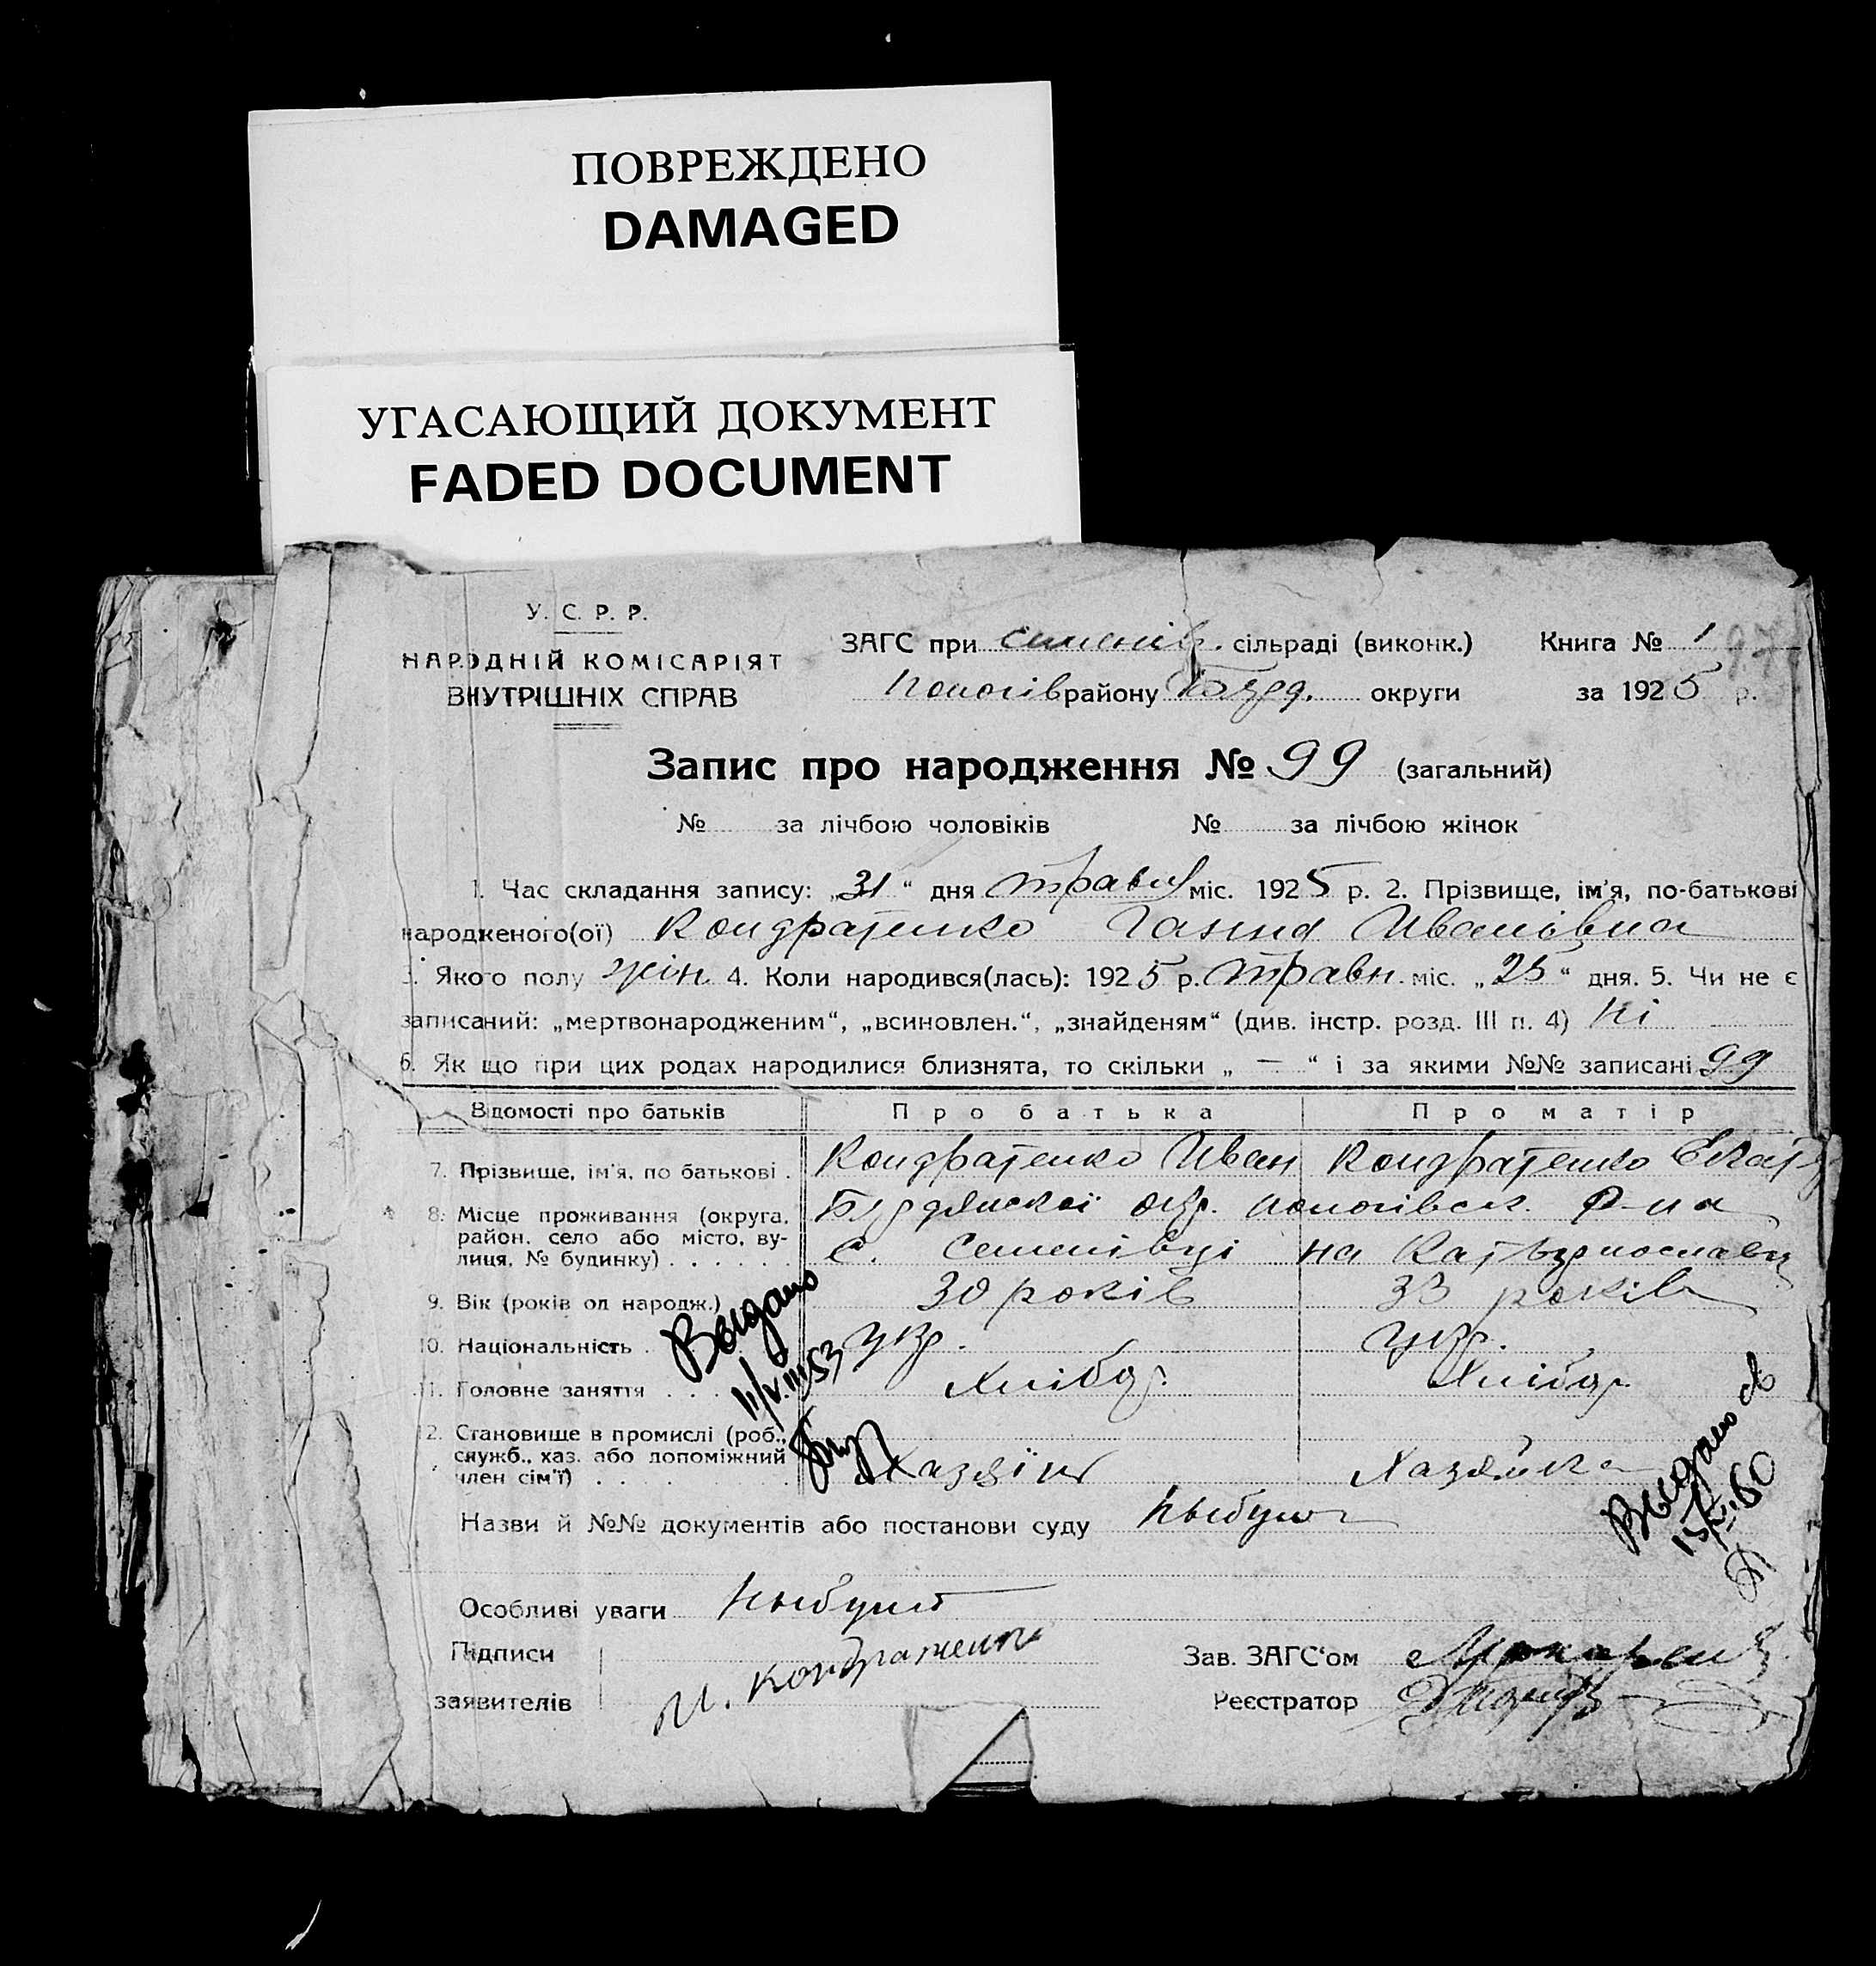 ПОВРЕЖДЕНО
DAMAGED
УГАСАЮЩИЙ ДОКУМЕНТ
FADED DOCUMENT
У. С. Р. Р.
НАРОДНІЙ КОМІСАРІЯТ
ВНУТРІШНІХ СПРАВ
ЗАГС при Семенів. сільраді (виконк.) Книга № 1
Пологів району Бердд. округи за 1925 р.
Запис про народження № 99 (загальний)
№ за лічбою чоловіків № за лічбою жінок
1. Час складання запису: „31“ дня травня міс. 1925 р. 2. Прізвище, ім'я, по-батькові
народженого(ої) Кондратенко Галина Ивановна
3. Якого полу жін. 4. Коли народився(лась): 1925 р. травн. міс. „25“ дня. 5. Чи не є
записаний: „мертвонародженим“, „всиновлен.“, „знайденям“ (див. інстр. розд. III п. 4) Ні
6. Як що при цих родах народилися близнята, то скільки „ — “ і за якими №№ записані 99
Відомості про батьків Про батька Про матір
7. Прізвище, ім'я, по батькові . Кондратенко Иван Кондратенко Екат
8. Місце проживання (округа, район, село або місто, вулиця, № будинку) . . . . . . Бердянскої окр. пологівск. р-на
с. Семенівці на
9. Вік (років од народж.) 30 років 33 років
10. Національність . укр. укр.
11. Головне заняття . . . Хлібор. Хлібор.
12. Становище в промислі (роб., служб., хаз. або допоміжний член сім'ї) . . . Хазяїн Хазяйка
Выдано
11/VIII 53
Выдано св
15/ 60
Назви й №№ документів або постанови суду
Особливі уваги
Підписи
заявителів И. Кондратенко
Зав. ЗАГС'ом
Реєстратор